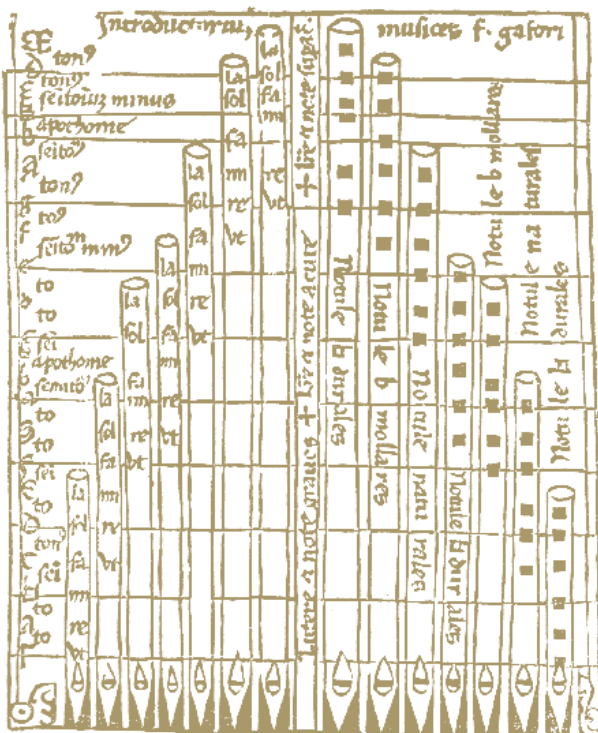 Introductoriu, musices f. gafori
tonꝰ
tonꝰ
seitoiuȝ minus
apothome
seitoꝰ
tonꝰ
toꝰ
seitoᵐ minꝰ
to
to
sei
apothome
semitoꝰ
to
to
sei
to
tonꝰ
sei
to
to
la
sol
fa
mi
re
vt
la
sol
fa
mi
re
vt
la
sol
fa
mi
re
vt
la
sol
fa
mi
re
vt
la
sol
fa
mi
re
vt
la
sol
fa
mi
re
vt
la
sol
fa
mi
re
vt
note graues + lr̄e ⁊ note acute + lr̄e ⁊ note
Notule ♮ durales
Notule b mollares
Notule naturales
Notule ♮ durales
Notule b mollares
Notule naturales
Notule ♮ durales